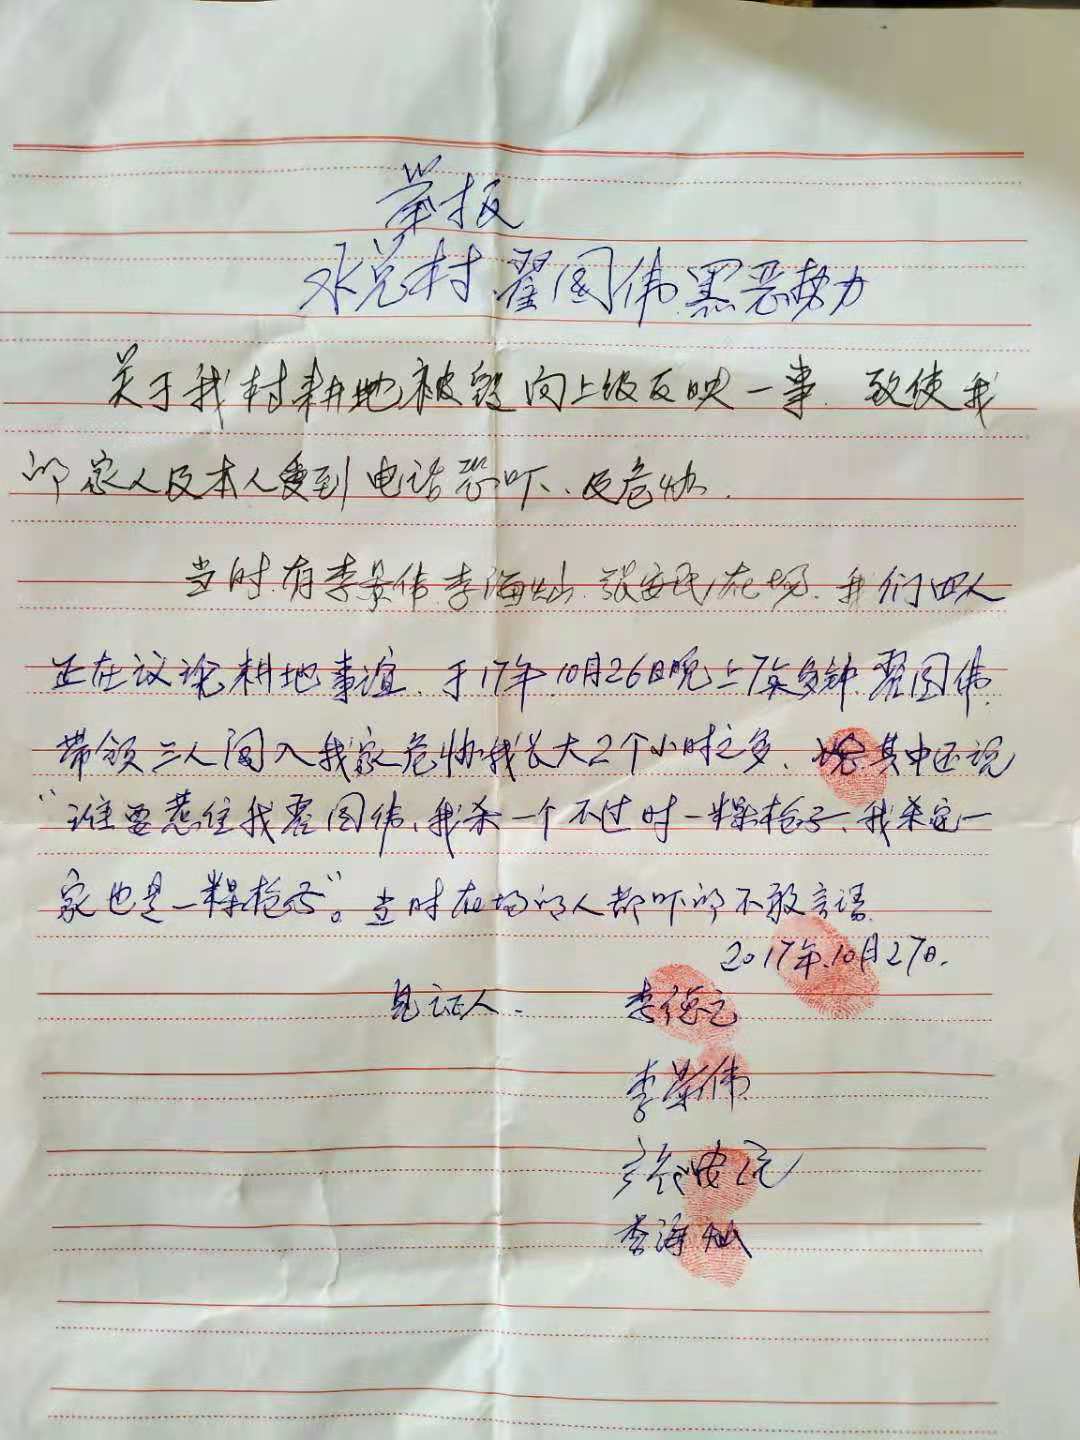 举报
水兑村翟国伟黑恶势力
关于我村耕地被毁向上级反映一事.致使我
的家人及本人受到电话恐吓、及危协.
当时有李景伟李海灿.张安民在场.我们四人
正在议论耕地事谊.于17年.10月26日晚上7点多钟.翟国伟.
带领三人闯入我家危协我长大2个小时之多、其中还说
“谁要惹住我翟国伟、我杀一个不过时一粿枪子、我杀定一
家也是一粿枪子”。当时在场的人都吓的不敢言语.
2017年.10月27日.
见证人.
李德元
李景伟
张安民
李海灿